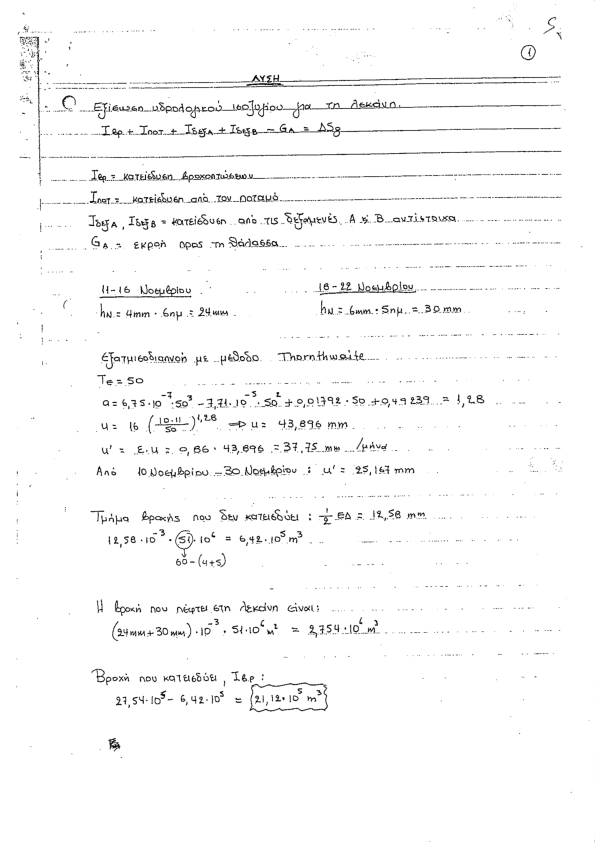 5
1
ΛΥΣΗ
Εξίσωση υδρολογικού ισοζυγίου για τη λεκάνη.
Iβρ + Iποτ + IδεξA + IδεξB - GA = ΔSg
Iβρ = κατείσδυση βροχοπτώσεων
Iποτ = κατείσδυση από τον ποταμό
IδεξA, IδεξB = κατείσδυση από τις δεξαμενές A & B αντίστοιχα
GA = εκροή προς τη θάλασσα
11-16 Νοεμβρίου 18-22 Νοεμβρίου
hN = 4mm · 6ημ = 24mm hN = 6mm · 5ημ. = 30mm
Εξατμισοδιαπνοή με μέθοδο Thornthwaite
TE = 50
a = 6,75·10^-7·50^3 - 7,71·10^-5·50^2 + 0,01792·50 + 0,49239 = 1,28
u = 16 (10·11/50)^1,28 ⇒ u = 43,896 mm
u' = ε·u = 0,86 · 43,896 = 37,75 mm /μήνα
Από 10 Νοεμβρίου - 30 Νοεμβρίου : u' = 25,167 mm
Τμήμα βροχής που δεν κατεισδύει : 1/2 ΕΔ = 12,58 mm
12,58·10^-3 · 51 · 10^6 = 6,42·10^5 m^3
60-(4+5)
Η βροχή που πέφτει στη λεκάνη είναι:
(24mm+30mm)·10^-3 · 51·10^6 m^2 = 2,754·10^6 m^3
Βροχή που κατεισδύει, Iβρ :
27,54·10^5 - 6,42·10^5 = 21,12·10^5 m^3